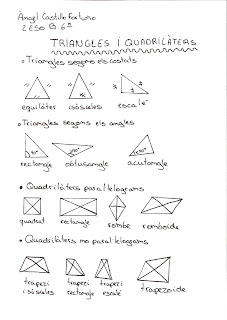 Àngel Castillo Fortuno
2 ESO B 6º
TRIANGLES I QUADRILÀTERS
• Triangles segons els costats
equilàter isòsceles escalè
• Triangles segons els angles
90º
rectangle obtusangle acutangle
• Quadrilàters paral·lelograms
quadrat rectangle rombe romboide
• Quadrilàters no paral·lelograms
trapezi trapezi trapezi trapezoide
isòsceles rectangle escalè